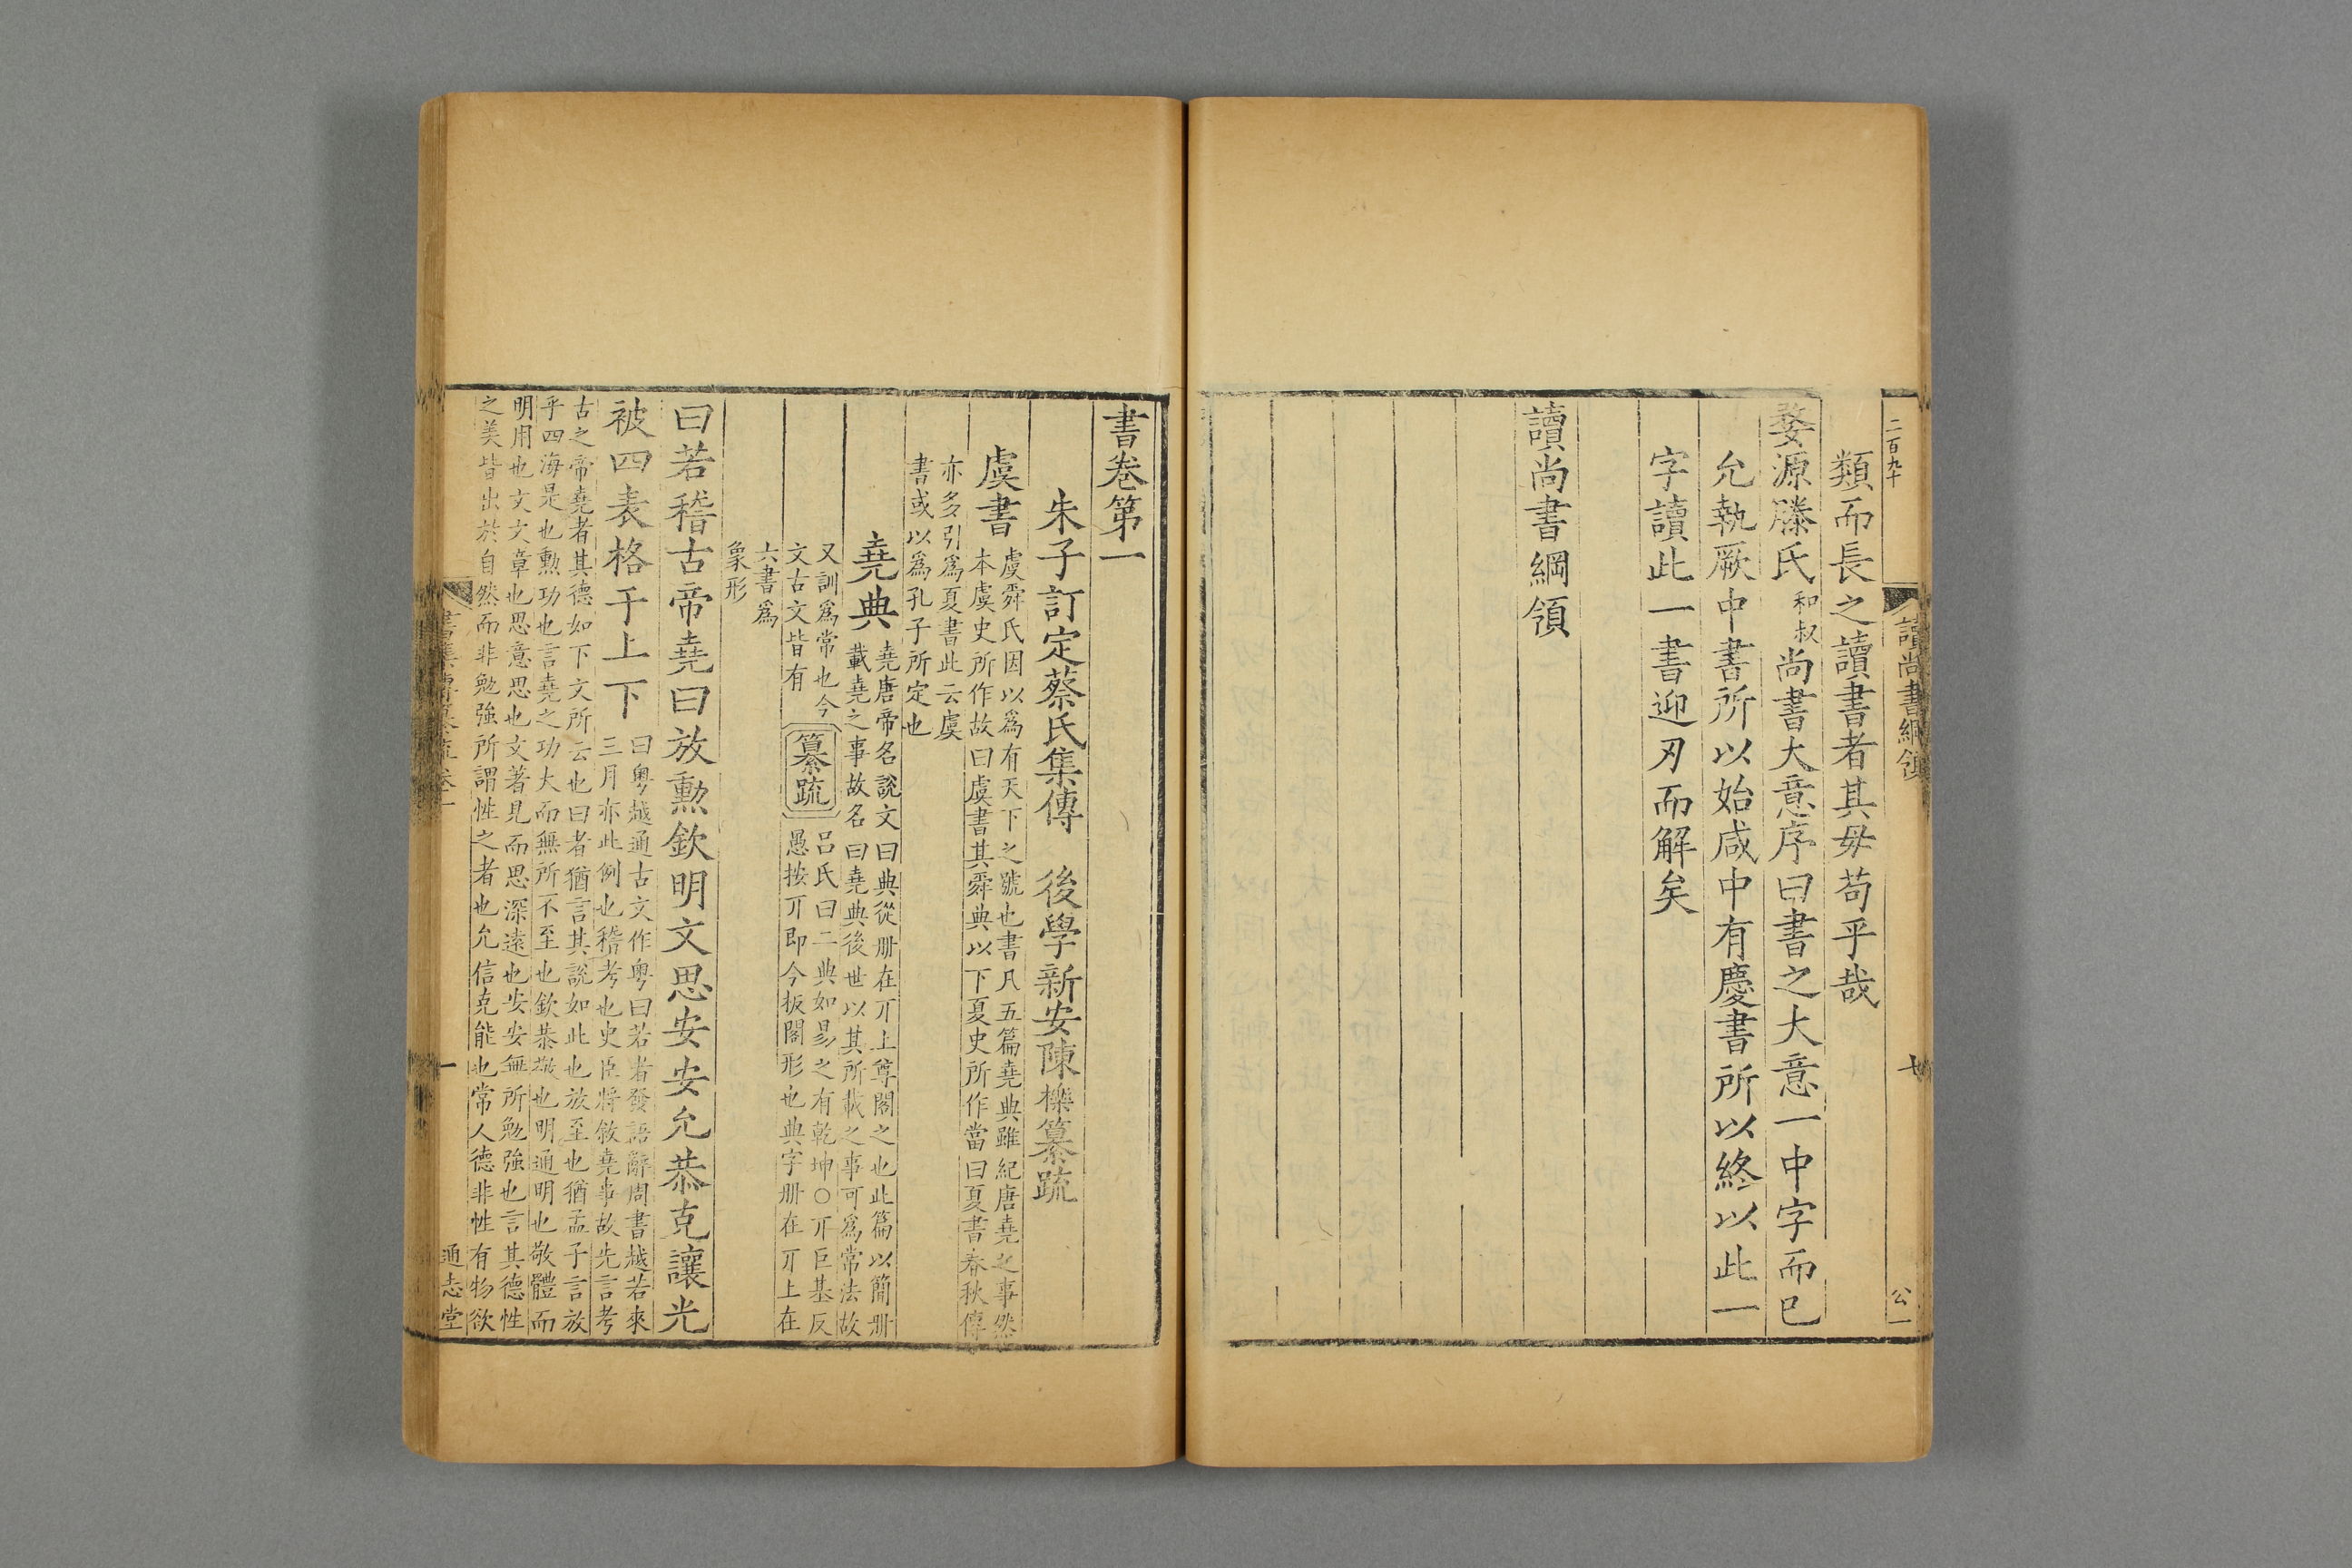 二百九十
讀尚書綱領
七
公一
類而長之讀書者其毋苟乎哉
婺源滕氏和叔尚書大意序曰書之大意一中字而已
允執厥中書所以始咸中有慶書所以終以此一
字讀此一書迎刃而解矣
讀尚書綱領
書卷第一
朱子訂定蔡氏集傳 後學新安陳櫟纂疏
虞書
虞舜氏因以為有天下之號也書凡五篇堯典雖紀唐堯之事然
本虞史所作故曰虞書其舜典以下夏史所作當曰夏書春秋傳
亦多引為夏書此云虞
書或以為孔子所定也
堯典
堯唐帝名說文曰典從冊在丌上尊閣之也此篇以簡冊
載堯之事故名曰堯典後世以其所載之事可為常法故
又訓為常也今
文古文皆有
纂疏
呂氏曰二典如易之有乾坤○丌巨基反
愚按丌即今板閣形也典字冊在丌上在
六書為
象形
曰若稽古帝堯曰放勲欽明文思安安允恭克讓光
被四表格于上下
曰粵越通古文作粵曰若者發語辭周書越若來
三月亦此例也稽考也史臣將敘堯事故先言考
古之帝堯者其德如下文所云也曰者猶言其說如此也放至也猶孟子言放
乎四海是也勲功也言堯之功大而無所不至也欽恭敬也明通明也敬體而
明用也文文章也思意思也文著見而思深遠也安安無所勉強也言其德性
之美皆出於自然而非勉強所謂性之者也允信克能也常人德非性有物欲
書集傳纂疏卷一
一
通志堂